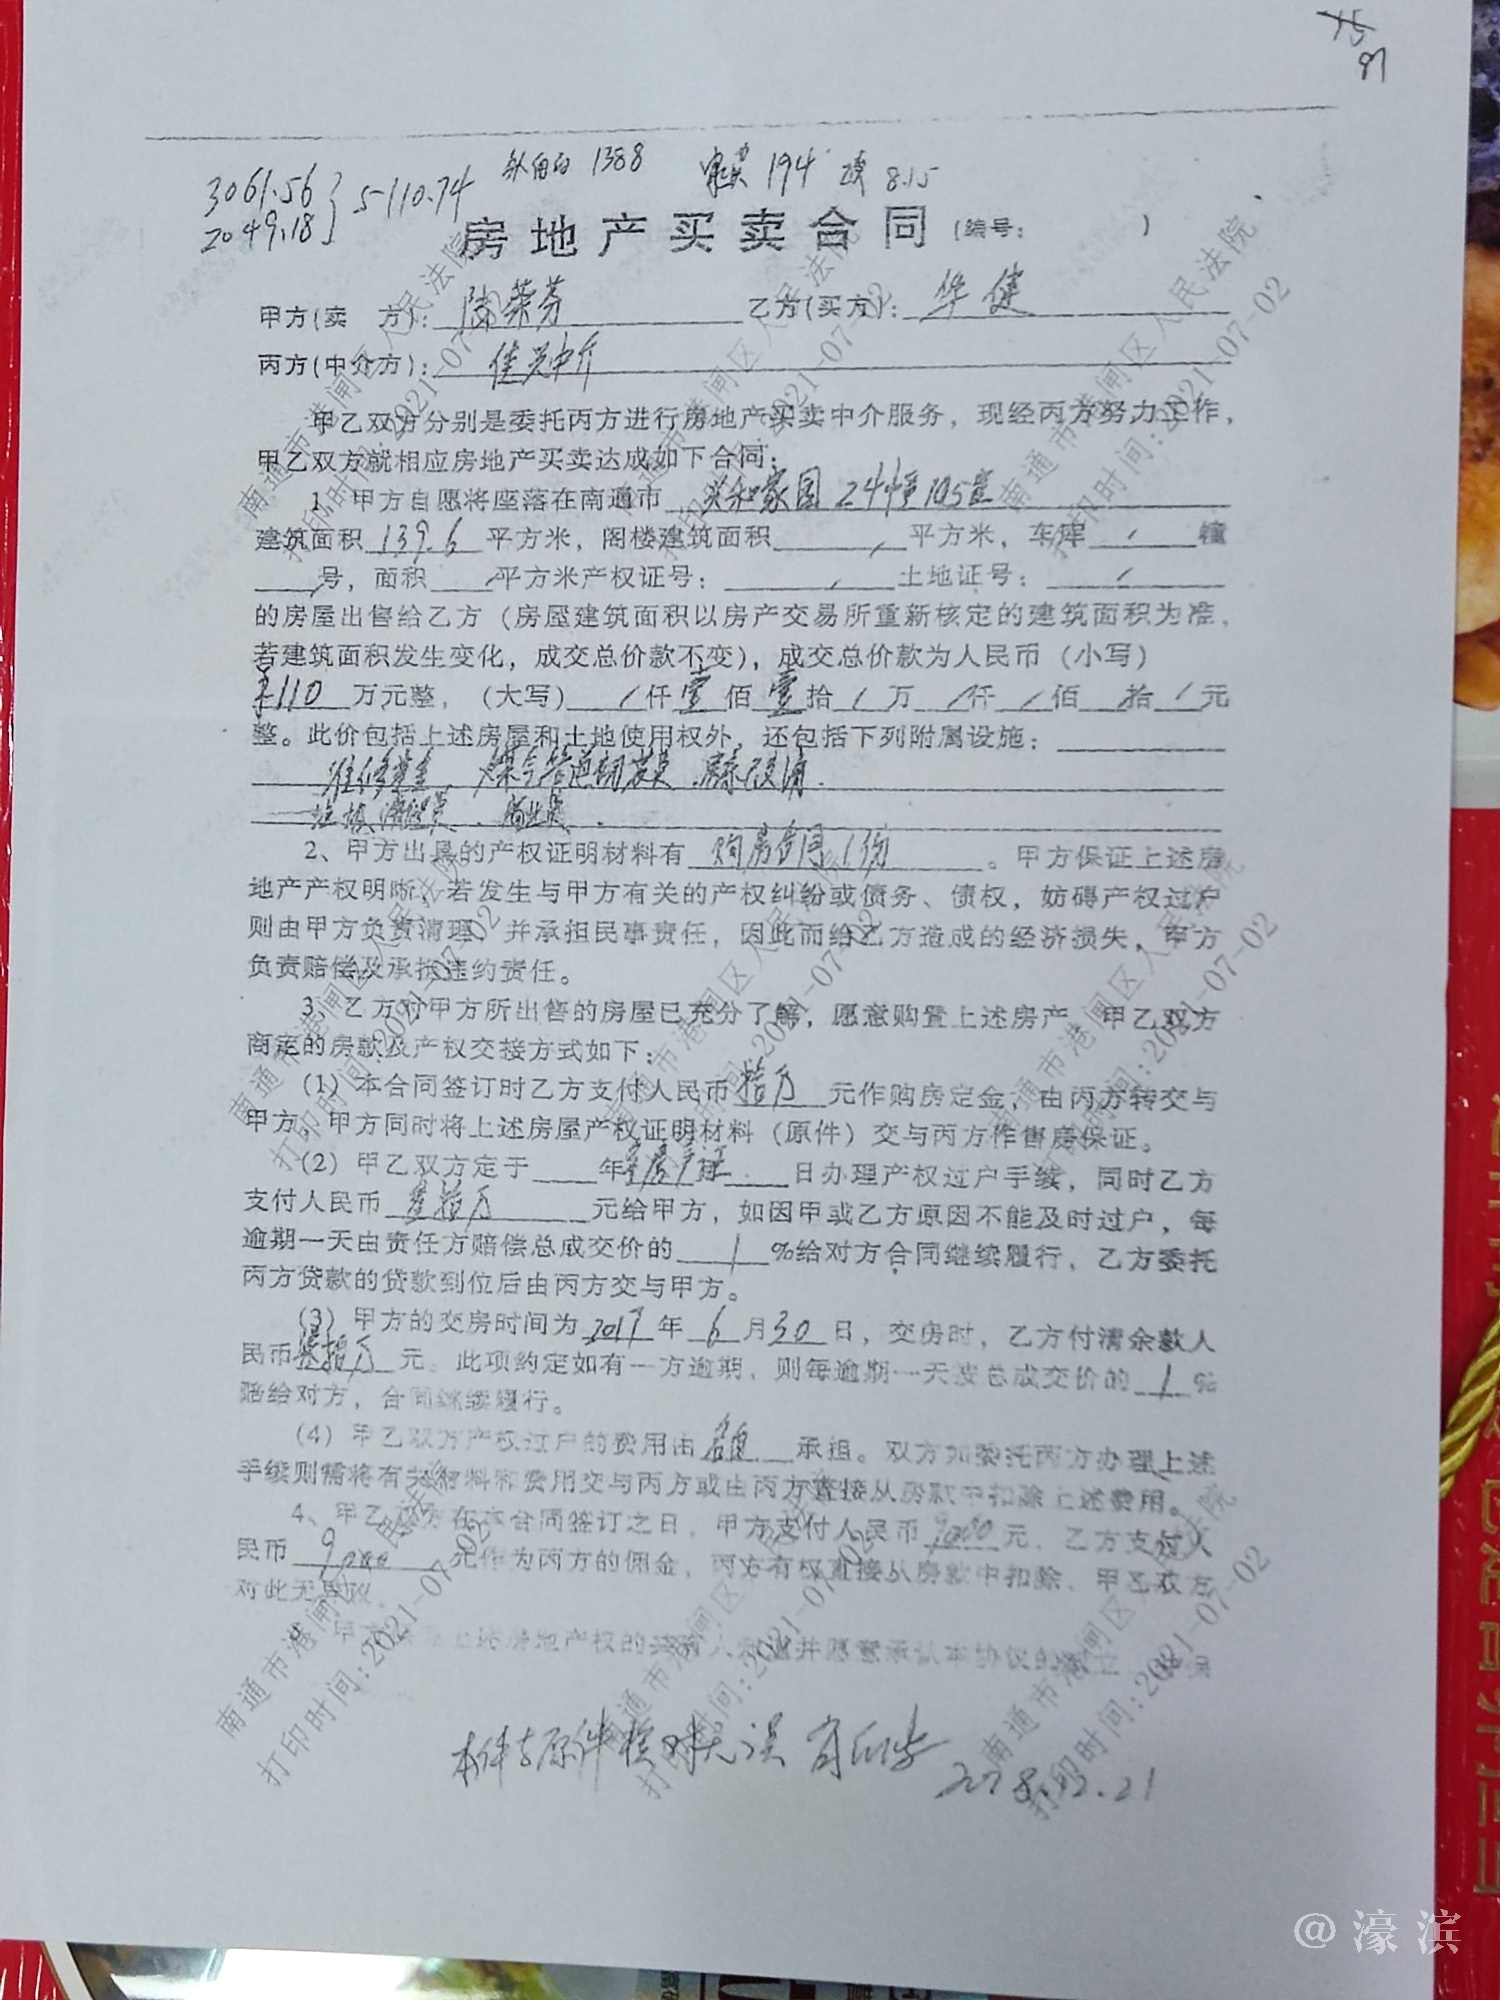 15
87
3061.56
2049.18
5110.74
1388
194 8.15
房地产买卖合同 (编号: )
甲方(卖 方): 陶荣芳 乙方(买方): 华健
丙方(中介方): 佳兴中介
甲乙双方分别是委托丙方进行房地产买卖中介服务，现经丙方努力工作，
甲乙双方就相应房地产买卖达成如下合同:
1、甲方自愿将座落在南通市 兴和家园 24幢105室
建筑面积 139.6 平方米，阁楼建筑面积 / 平方米，车库 / 幢
号，面积 / 平方米产权证号: / 土地证号: /
的房屋出售给乙方（房屋建筑面积以房产交易所重新核定的建筑面积为准，
若建筑面积发生变化，成交总价款不变），成交总价款为人民币（小写）
¥110 万元整，（大写） / 仟 壹 佰 壹 拾 / 万 / 仟 / 佰 拾 / 元
整。此价包括上述房屋和土地使用权外，还包括下列附属设施:
维修基金、煤气管道初装费
2、甲方出具的产权证明材料有 购房合同1份 。甲方保证上述房
地产产权明晰，若发生与甲方有关的产权纠纷或债务、债权，妨碍产权过户
则由甲方负责清理，并承担民事责任，因此而给乙方造成的经济损失，甲方
负责赔偿及承担违约责任。
3、乙方对甲方所出售的房屋已充分了解，愿意购置上述房产，甲乙双方
商定的房款及产权交接方式如下:
(1) 本合同签订时乙方支付人民币 拾万 元作购房定金，由丙方转交与
甲方，甲方同时将上述房屋产权证明材料（原件）交与丙方作售房保证。
(2) 甲乙双方定于 年 房产证 日办理产权过户手续，同时乙方
支付人民币 拾万 元给甲方，如因甲或乙方原因不能及时过户，每
逾期一天由责任方赔偿总成交价的 1 %给对方合同继续履行，乙方委托
丙方贷款的贷款到位后由丙方交与甲方。
(3) 甲方的交房时间为 2017 年 6 月 30 日，交房时，乙方付清余款人
民币 拾万 元。此项约定如有一方逾期，则每逾期一天按总成交价的 1 %
赔给对方，合同继续履行。
(4) 甲乙双方产权过户的费用由 各自 承担。双方如委托丙方办理上述
手续则需将有关材料和费用交与丙方或由丙方直接从房款中扣除上述费用。
4、甲乙双方在本合同签订之日，甲方支付人民币 9000 元，乙方支付人
民币 9000 元作为丙方的佣金，丙方有权直接从房款中扣除，甲乙双方
对此无异议。
上述房地产权的共有人 并愿意承认本协议的
本件与原件核对无误
2018.12.21
南通市港闸区人民法院
打印时间:2021-07-02
@濠滨